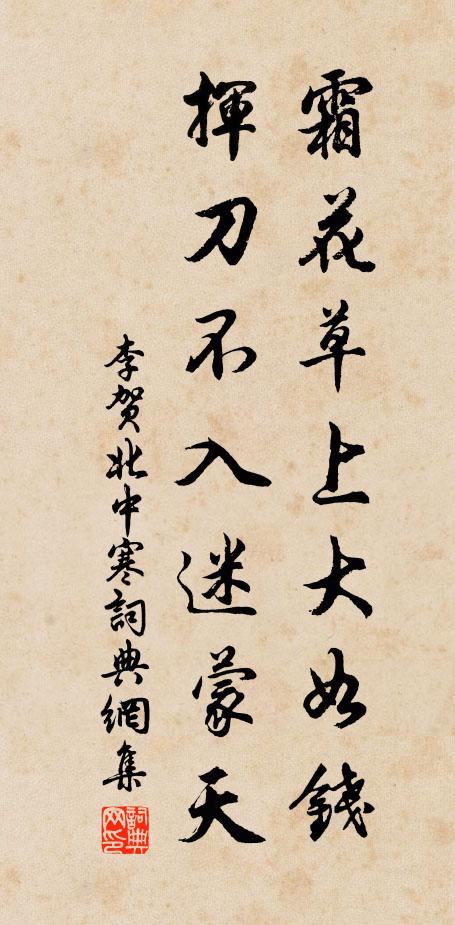 霜花草上大如錢
揮刀不入迷蒙天
李贺北中寒詞典網集
詞典网印